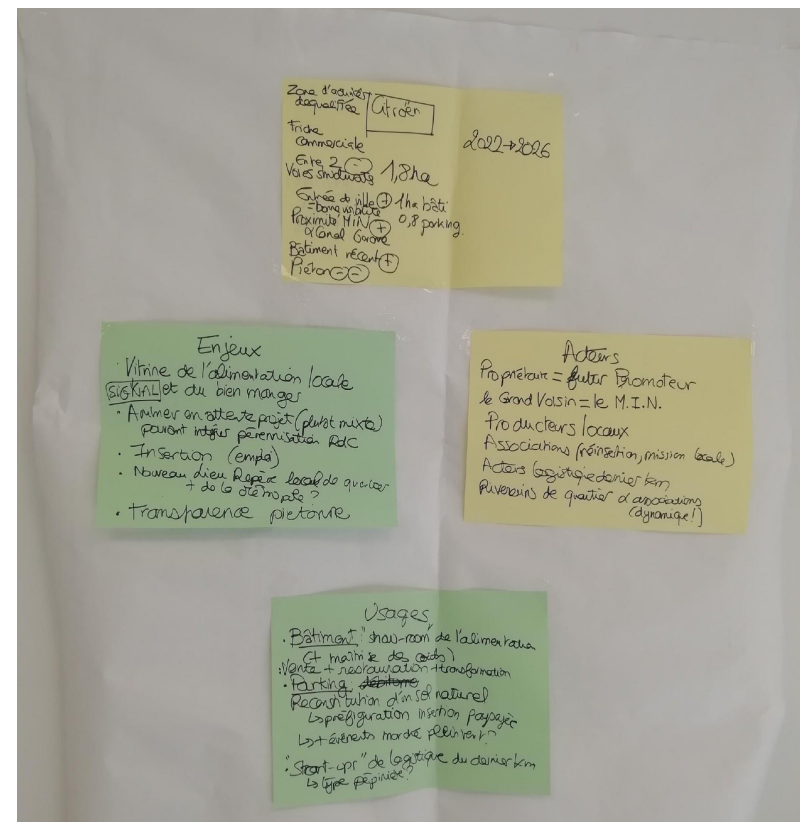 Zone d'activités
déqualifiée
Citroën
Friche
commerciale
2022→2026
Entre 2 ⊖
Voies 1,8ha
Entrée de ville ⊕ 1ha bâti
= bonne visibilité
Proximité MIN ⊕ 0,8 parking.
& Canal Garonne
Bâtiment récent ⊕
Piéton ⊖⊖
Enjeux
• Vitrine de l'alimentation locale
et du bien manger
• Animer en attente projet (plutôt mixte)
pouvant intégrer pérennisation RdC
• Insertion (emploi)
• Nouveau lieu Repère local de quartier
+ de la métropole?
• Transparence piétonne
Acteurs
Propriétaire = futur Promoteur
le Grand Voisin = le M.I.N.
Producteurs locaux
Associations (réinsertion, mission locale)
Acteurs logistique dernier km
Riverains de quartier & associations
(dynamique!)
Usages
• Bâtiment "show-room" de l'alimentation
(+ maîtrise des coûts)
: Vente + restauration + transformation
• Parking:
Reconstitution d'un sol naturel
↳ préfiguration insertion paysagère
↳ + événements marché plein vent?
• "Start-ups" de logistique du dernier km
↳ type pépinière?